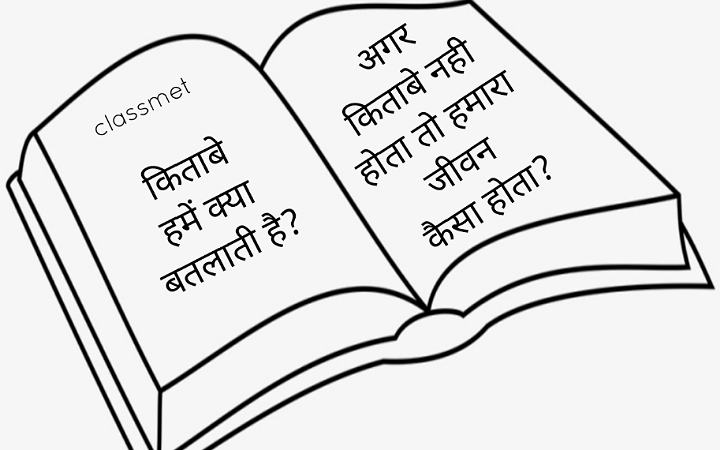 classmet
किताबे
हमें क्या
बतलाती है?
अगर
किताबे नही
होता तो हमारा
जीवन
कैसा होता?